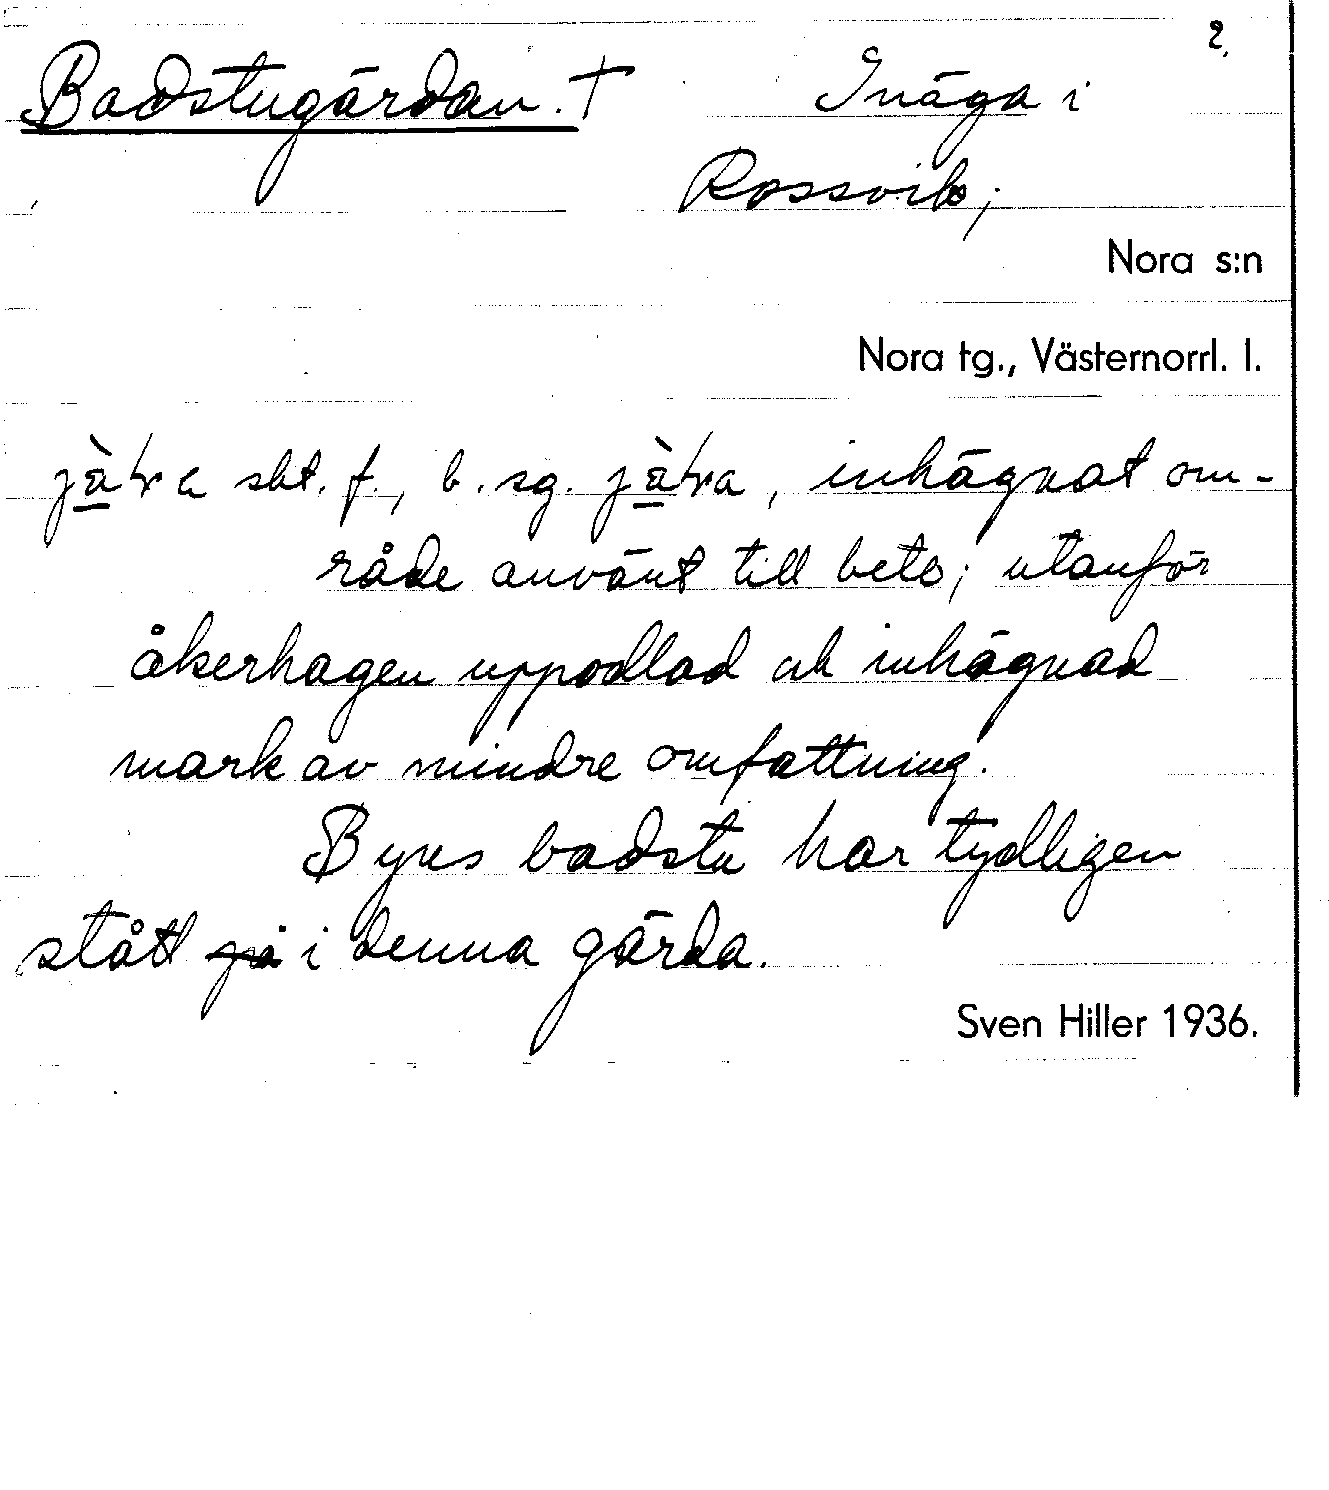 2.
Badstugärdan. † Inäga i
Rossvik;
Nora s:n
Nora tg., Västernorrl. l.
sbt. f., b. sg. , inhägnat om-
råde använt till bete; utanför
åkerhagen uppodlad och inhägnad
mark av mindre omfattning.
Byns badstu har tydligen
stått på i denna gärda.
Sven Hiller 1936.